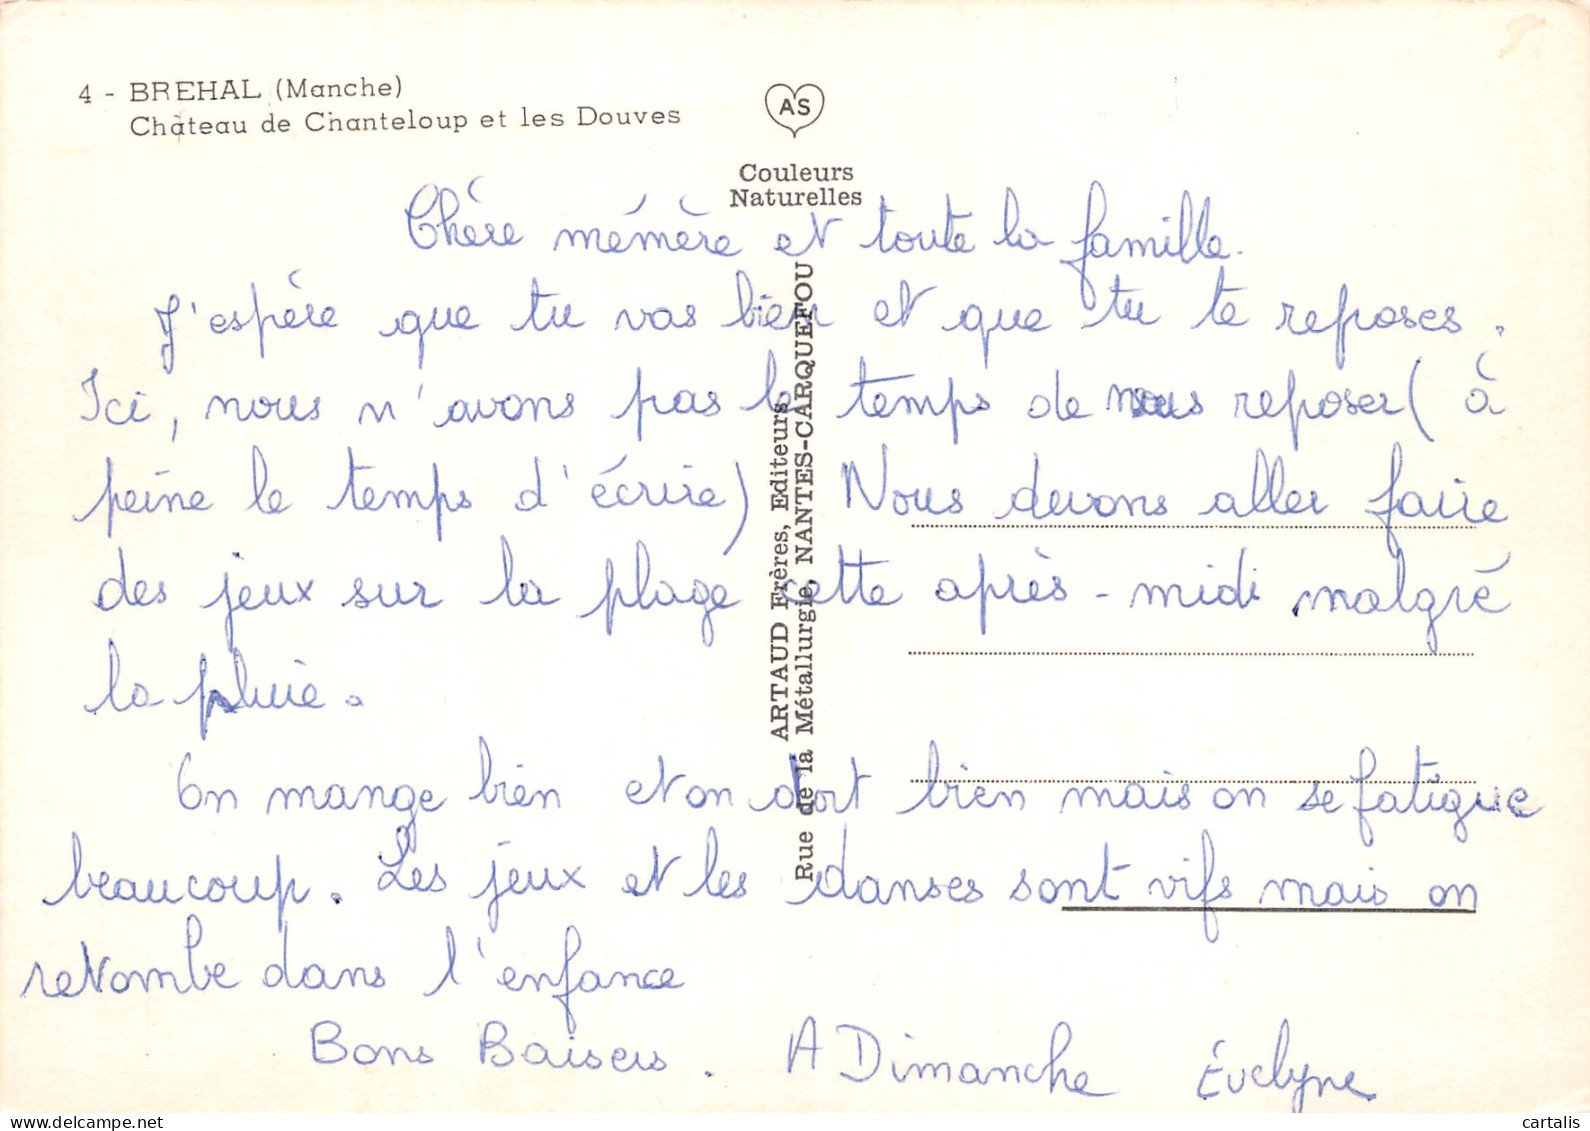 4 - BREHAL (Manche)
Château de Chanteloup et les Douves
AS
Couleurs
Naturelles
ARTAUD Frères, Editeurs
Rue de la Métallurgie, NANTES-CARQUEFOU
Chère mémère et toute la famille.
J'espère que tu vas bien et que tu te reposes.
Ici, nous n'avons pas le temps de nous reposer (à
peine le temps d'écrire) Nous devons aller faire
des jeux sur la plage cette après-midi malgré
la pluie.
On mange bien et on dort bien mais on se fatigue
beaucoup. Les jeux et les danses sont vifs mais on
retombe dans l'enfance
Bons Baisers. A Dimanche Évelyne
cartalis